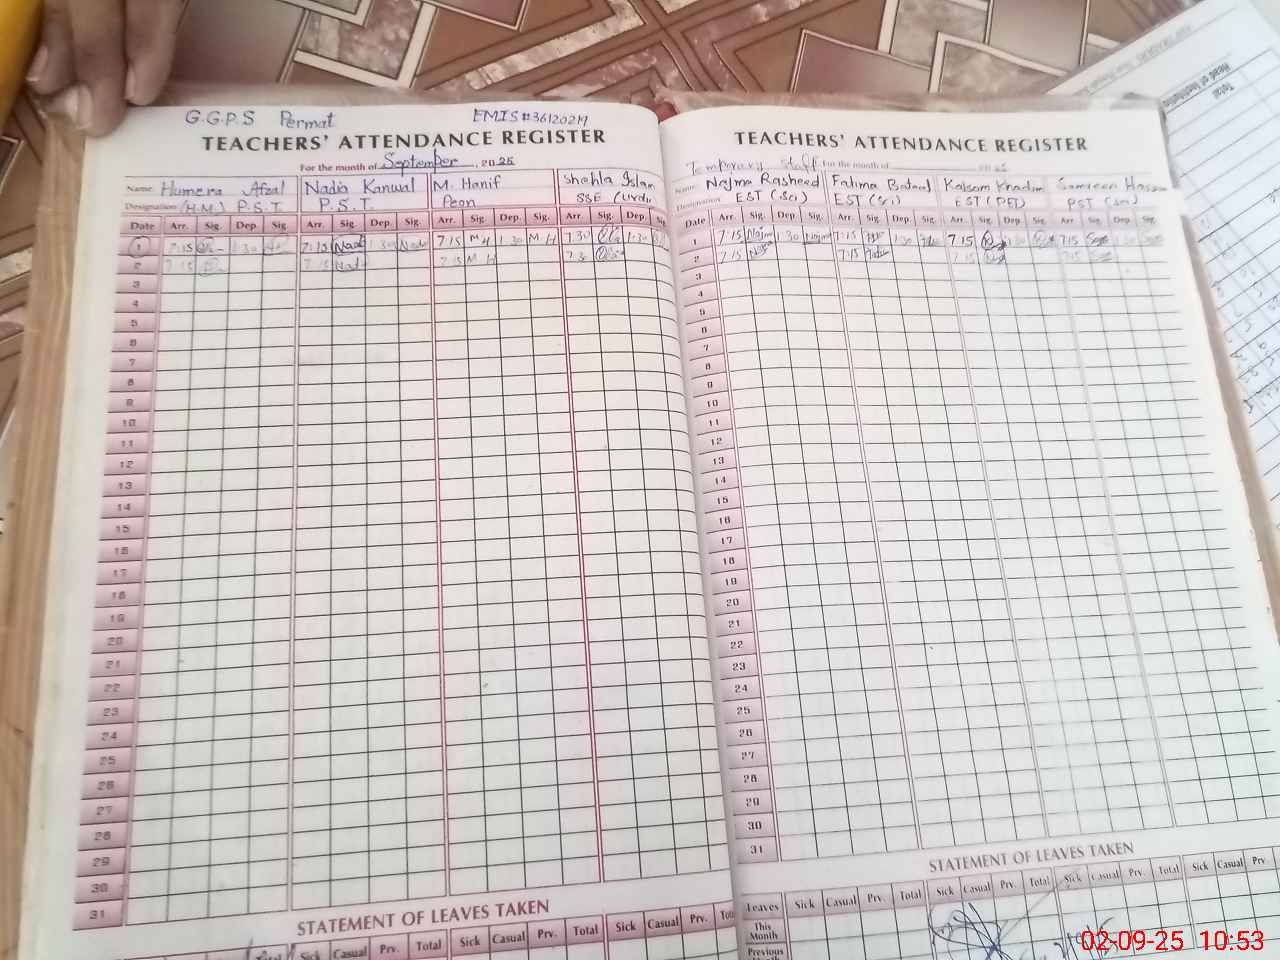 G.G.P.S Permat EMIS#36120219
TEACHERS' ATTENDANCE REGISTER
For the month of September, 2025
Name. Humera Afzal Nadia Kanwal M. Hanif Shahla Islam
Designation (H.M.) P.S.T. P.S.T. Peon SSE (Urdu
Date Arr. Sig. Dep. Sig. Arr. Sig. Dep. Sig. Arr. Sig. Dep. Sig. Arr. Sig. Dep. Sig.
1 7:15 1:30 7:15 Nadi 1:30 Nadi 7:15 M H 1:30 M H 7:30 1:30
2 7:15 7:15 Nadi 7:15 M H 7:3
3
4
5
6
7
8
9
10
11
12
13
14
15
16
17
18
19
20
21
22
23
24
25
26
27
28
29
30
31
STATEMENT OF LEAVES TAKEN
Total Sick Casual Prv. Total Sick Casual Prv. Total Sick Casual Prv. Tot
TEACHERS' ATTENDANCE REGISTER
Temporary staff For the month of 2025
Name. Najma Rasheed Fatima Batool Kalsom Khadim Samreen Hassan
Designation EST (Sci) EST (Sci) EST (PET) PST (Sci)
Date Arr. Sig. Dep. Sig. Arr. Sig. Dep. Sig. Arr. Sig. Dep. Sig. Arr. Sig. Dep. Sig.
1 7:15 Najm 1:30 Najm 7:15 1:30 7:15 1:30 7:15 1:30
2 7:15 7:15 7:15 7:15
3
4
5
6
7
8
9
10
11
12
13
14
15
16
17
18
19
20
21
22
23
24
25
26
27
28
29
30
31
STATEMENT OF LEAVES TAKEN
Leaves Sick Casual Prv. Total Sick Casual Prv. Total Sick Casual Prv. Total Sick Casual Prv.
This Month
Previous
Head of Institution
Total
02-09-25 10:53